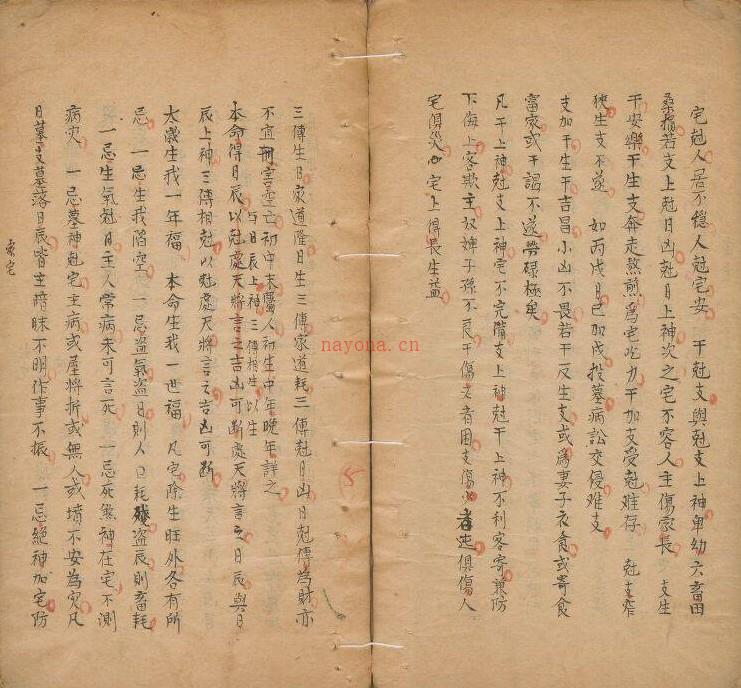 宅尅人居不穩人尅宅安 干尅支與尅支上神卑幼六畜田
桑損若支上尅日凶尅日上神次之宅不容人主傷家長 支生
干安樂干生支奔走熬煎爲宅吃力干加支受尅难存 尅支窄
狹生支不遂 如丙戌日巳加戌投墓病訟交侵难支
支加干生干吉昌小凶不畏若干反生支或爲妻子衣食或寄食
富家或干謁不遂勞碌極矣
凡干上神尅支上神宅不完備支上神尅干上神不利客寄兼防
下侮上客欺主奴婢子孫不良干傷支者困支傷干者迍俱傷人
宅俱災 宅上得長生益
三傳生日家道隆日生三傳家道耗三傳尅日凶日尅傳為財亦
不宜空亡初中末屬人初生中年晚年詳之
與日辰上神三傳相生以生
本命得日辰以尅處天將言之吉凶可斷處天將言之日辰與日
辰上神三傳相尅以尅處天將言之吉凶可断
太歲生我一年福 本命生我一世福 凡宅除生旺外各有所
忌 一忌生我陷空 一忌盜氣盜日則人口耗殘盜辰則畜耗
一忌生氣尅日主人常病未可言死 一忌死煞神在宅不測
病灾 一忌墓神尅宅主病或屋將折或無人或墳不安為灾凡
日墓支墓落日辰皆主暗昧不明作事不振 一忌絕神加宅防
家宅
5
nayona.cn